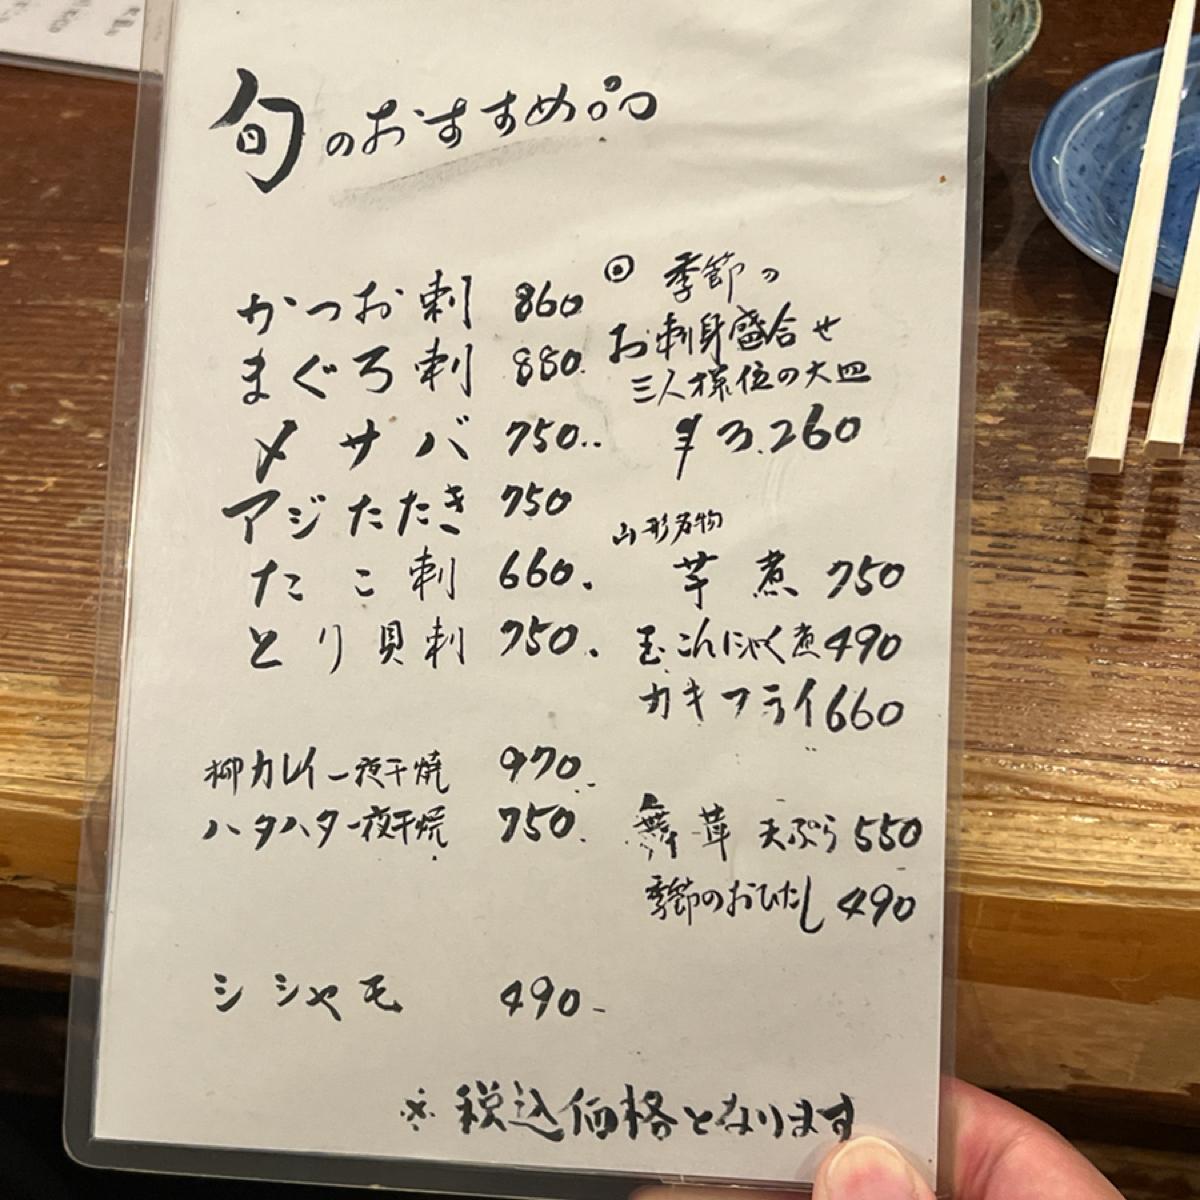 旬のおすすめ品
かつお刺 860
まぐろ刺 880
〆サバ 750
アジたたき 750
たこ刺 660
とり貝刺 750
柳カレイ一夜干焼 970
ハタハタ一夜干焼 750
シシャモ 490
◎季節の
お刺身盛合せ
三人様位の大皿
¥3,260
山形名物
芋煮 750
玉こんにゃく煮 490
カキフライ 660
舞茸天ぷら 550
季節のおひたし 490
※税込価格となります